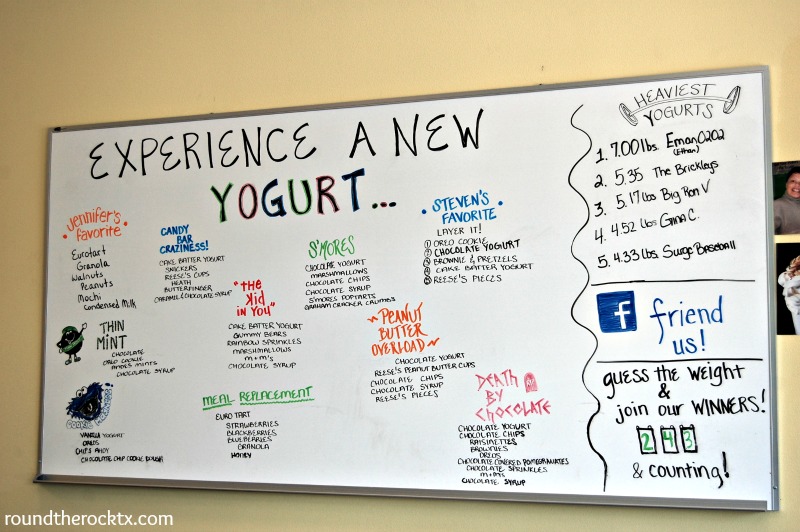 EXPERIENCE A NEW
YOGURT...
Jennifer's
favorite
Eurotart
Granola
Walnuts
Peanuts
Mochi
Condensed Milk
CANDY
BAR
CRAZINESS!
CAKE BATTER YOGURT
SNICKERS
REESE'S CUPS
HEATH
BUTTERFINGER
CARAMEL & CHOCOLATE SYRUP
"THE
Kid
IN YOU"
CAKE BATTER YOGURT
GUMMY BEARS
RAINBOW SPRINKLES
MARSHMALLOWS
M+M'S
CHOCOLATE SYRUP
S'MORES
CHOCOLATE YOGURT
MARSHMALLOWS
CHOCOLATE CHIPS
CHOCOLATE SYRUP
S'MORES POPTARTS
GRAHAM CRACKER CRUMBS
STEVEN'S
FAVORITE
LAYER IT!
① OREO COOKIE
② CHOCOLATE YOGURT
③ BROWNIE & PRETZELS
④ CAKE BATTER YOGURT
⑤ REESE'S PIECES
THIN
MINT
CHOCOLATE
OREO COOKIE
ANDES MINTS
CHOCOLATE SYRUP
PEANUT
BUTTER
OVERLOAD
CHOCOLATE YOGURT
REESE'S PEANUT BUTTER CUPS
CHOCOLATE CHIPS
CHOCOLATE SYRUP
REESE'S PIECES
COOKIE
VANILLA YOGURT
OREOS
CHIPS AHOY
CHOCOLATE CHIP COOKIE DOUGH
MEAL REPLACEMENT
EURO TART
STRAWBERRIES
BLACKBERRIES
BLUEBERRIES
GRANOLA
HONEY
DEATH
BY
CHOCOLATE
CHOCOLATE YOGURT
CHOCOLATE CHIPS
RAISINETTES
BROWNIES
OREOS
CHOCOLATE COVERED POMEGRANATES
CHOCOLATE SPRINKLES
M+M'S
CHOCOLATE SYRUP
HEAVIEST
YOGURTS
1. 7.00 lbs. Eman0202
(Ethan)
2. 5.35 The Brickleys
3. 5.17 lbs Big Ron V
4. 4.52 lbs Gina C.
5. 4.33 lbs. Surge Baseball
f friend
us!
guess the weight
&
join our WINNERS!
243
& counting!
roundtherocktx.com